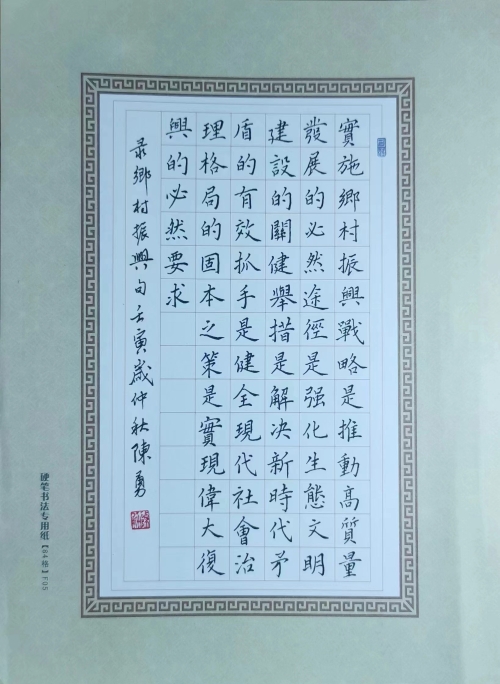 實施鄉村振興戰略是推動高質量
發展的必然途徑是强化生態文明
建設的關健舉措是解决新時代矛
盾的有效抓手是健全現代社會治
理格局的固本之策是實現偉大復
興的必然要求
鄉村振興句壬寅歲仲秋陳勇
硬笔书法专用纸【64格】E05